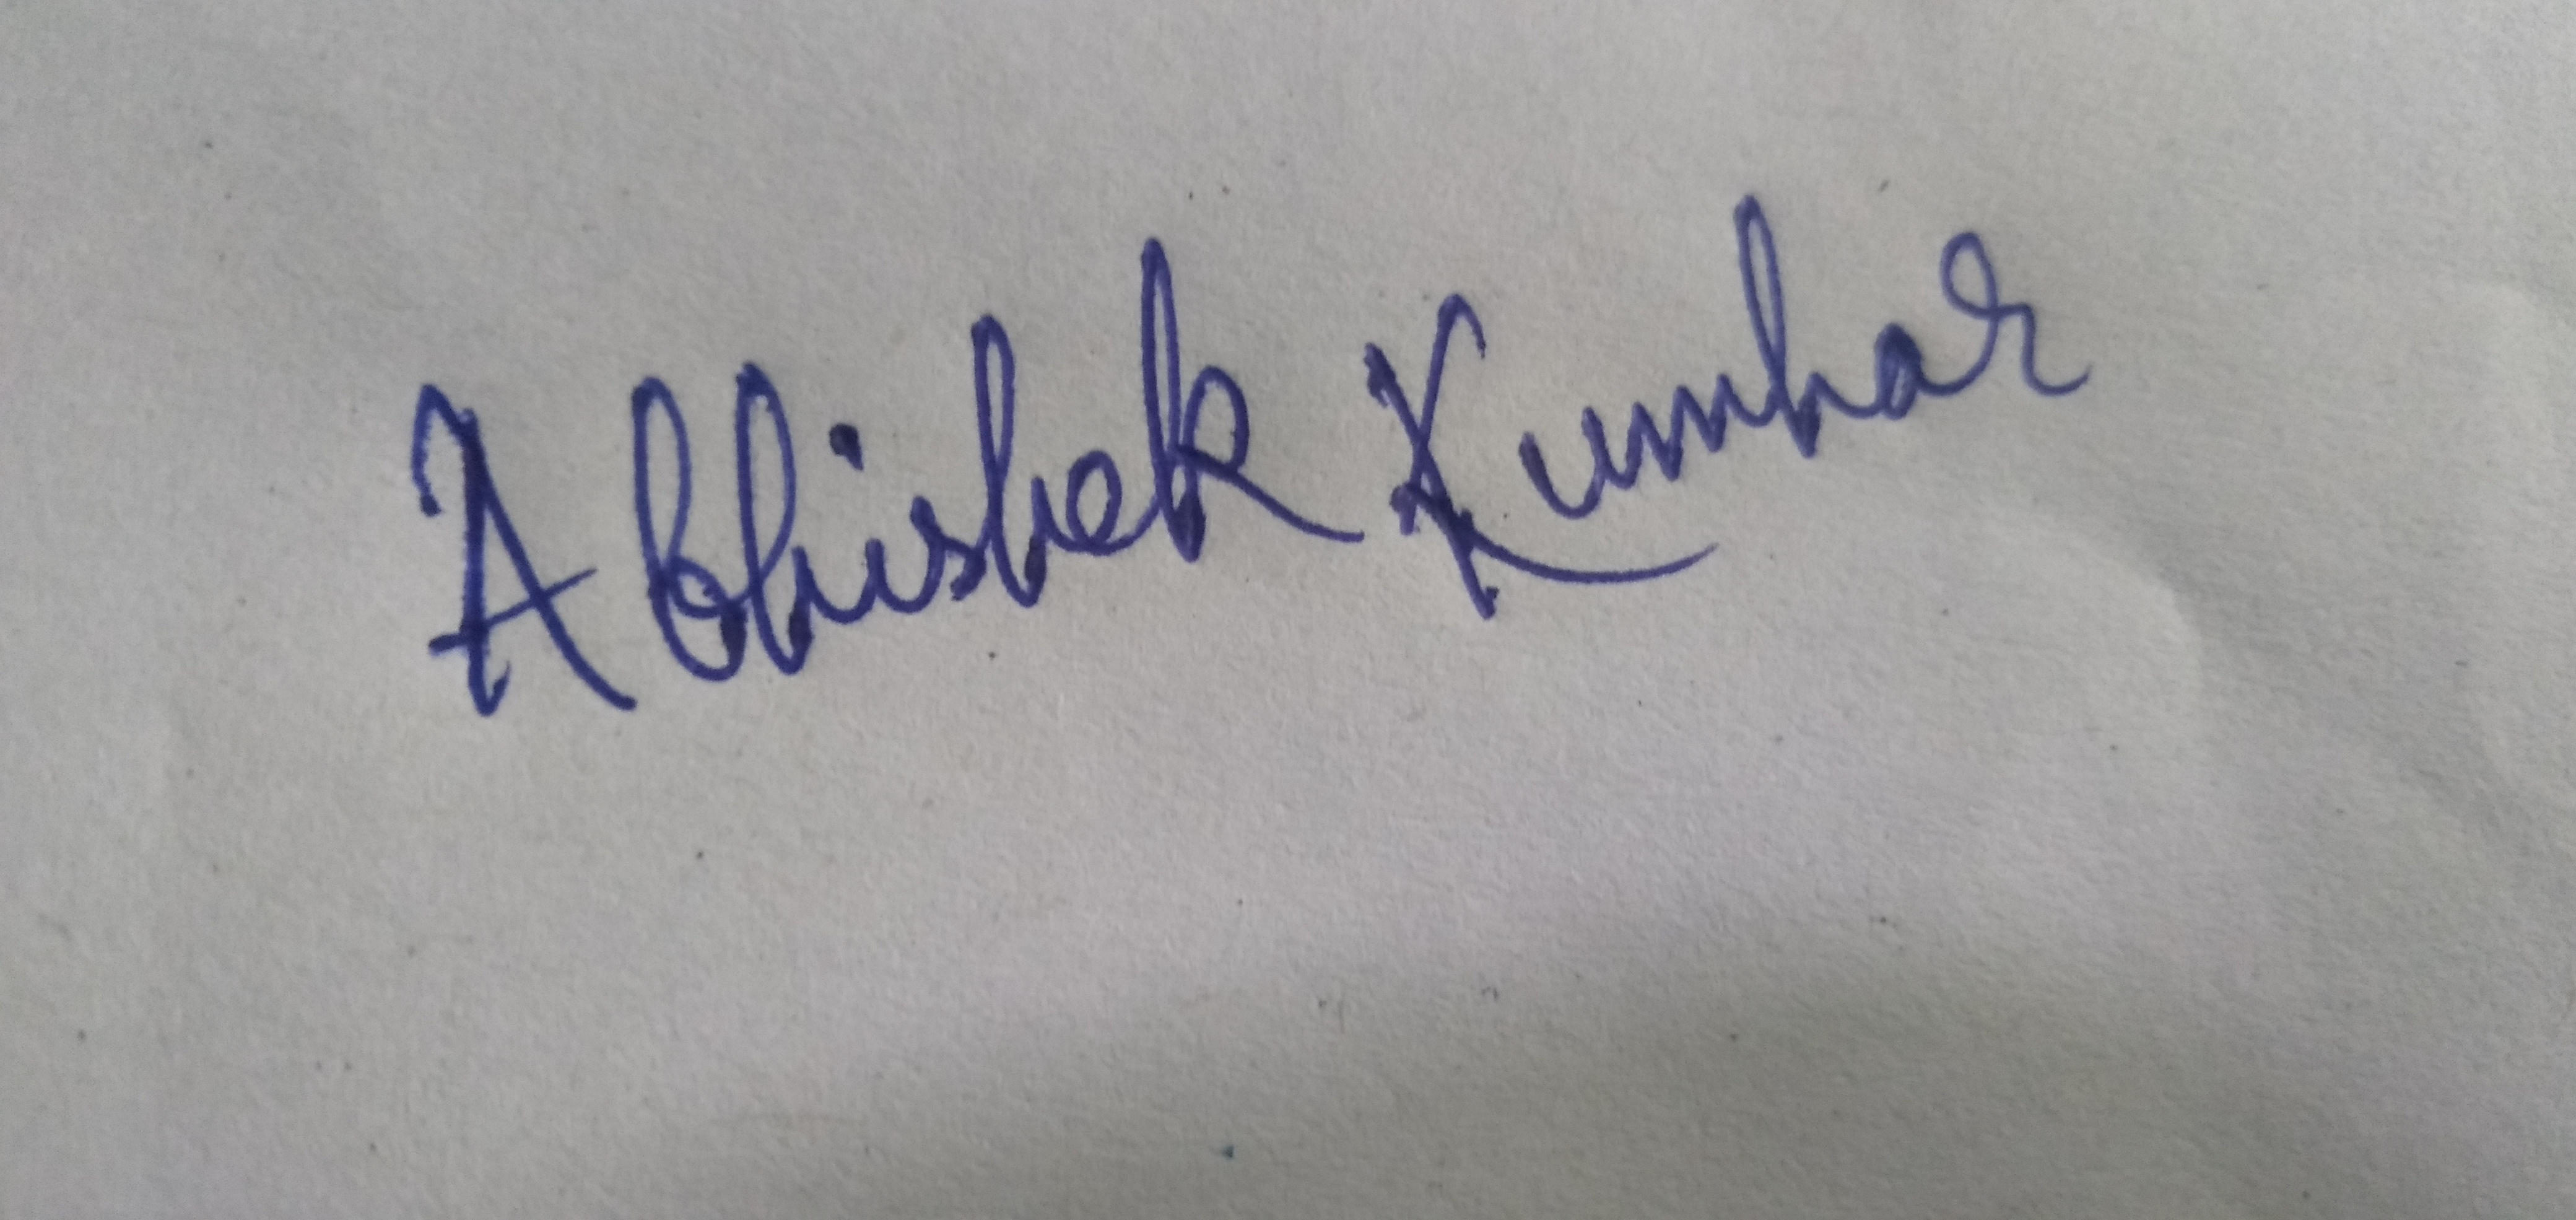 Abhishek Kumhar